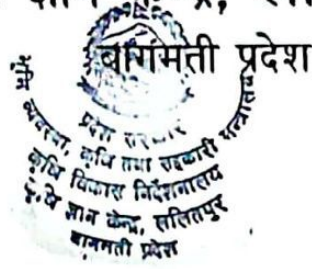 बागमती प्रदेश
प्रदेश सरकार
व्यवस्था, कृषि तथा सहकारी मन्त्रालय
कृषि विकास निर्देशनालय
कृषि ज्ञान केन्द्र, ललितपुर
बागमती प्रदेश